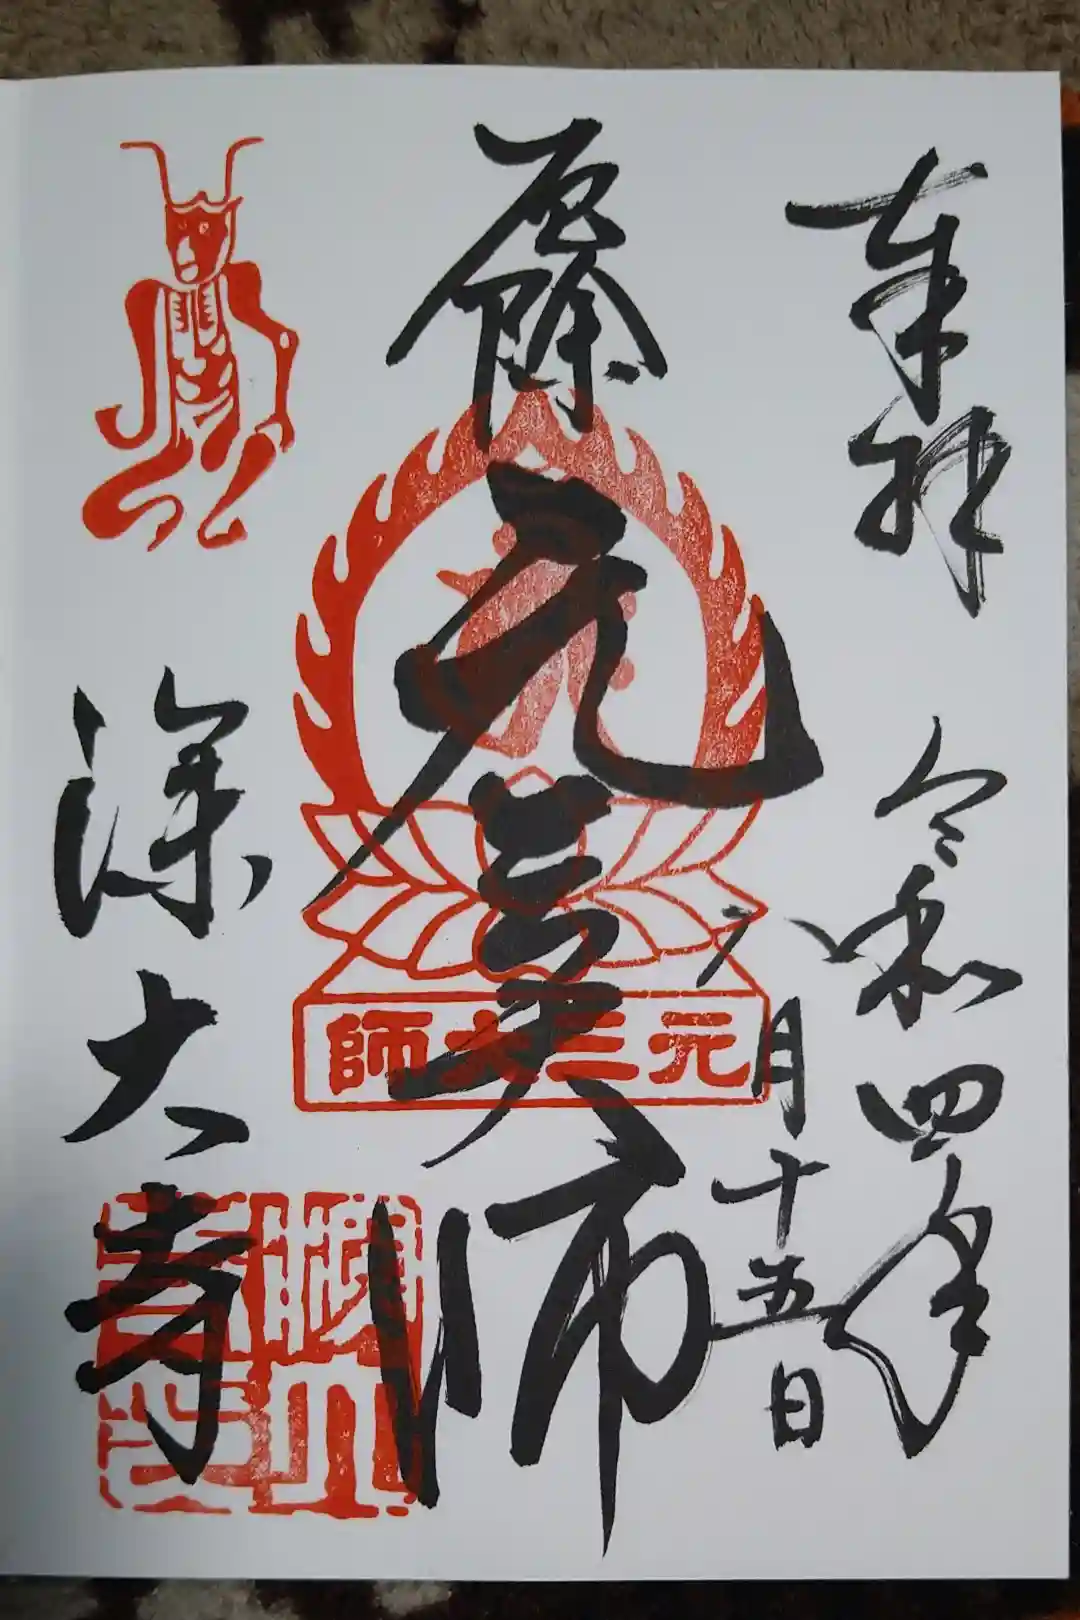 奉拝
令和四年
八月十五日
厄除
元三大師
師大三元
深大寺